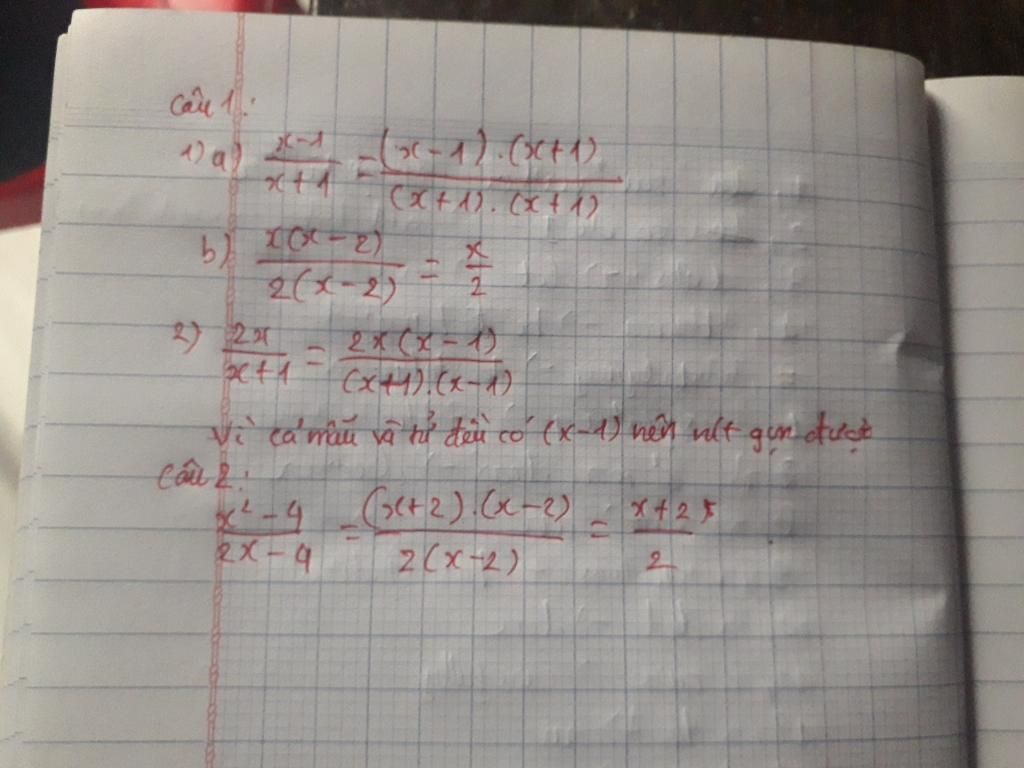 Câu 1:
1) a) \frac{x-1}{x+1} = \frac{(x-1).(x+1)}{(x+1).(x+1)}
b) \frac{x(x-2)}{2(x-2)} = \frac{x}{2}
2) \frac{2x}{x+1} = \frac{2x(x-1)}{(x+1).(x-1)}
Vì cả mẫu và tử đều có (x-1) nên rút gọn được
Câu 2:
\frac{x^2-4}{2x-4} = \frac{(x+2).(x-2)}{2(x-2)} = \frac{x+2}{2}